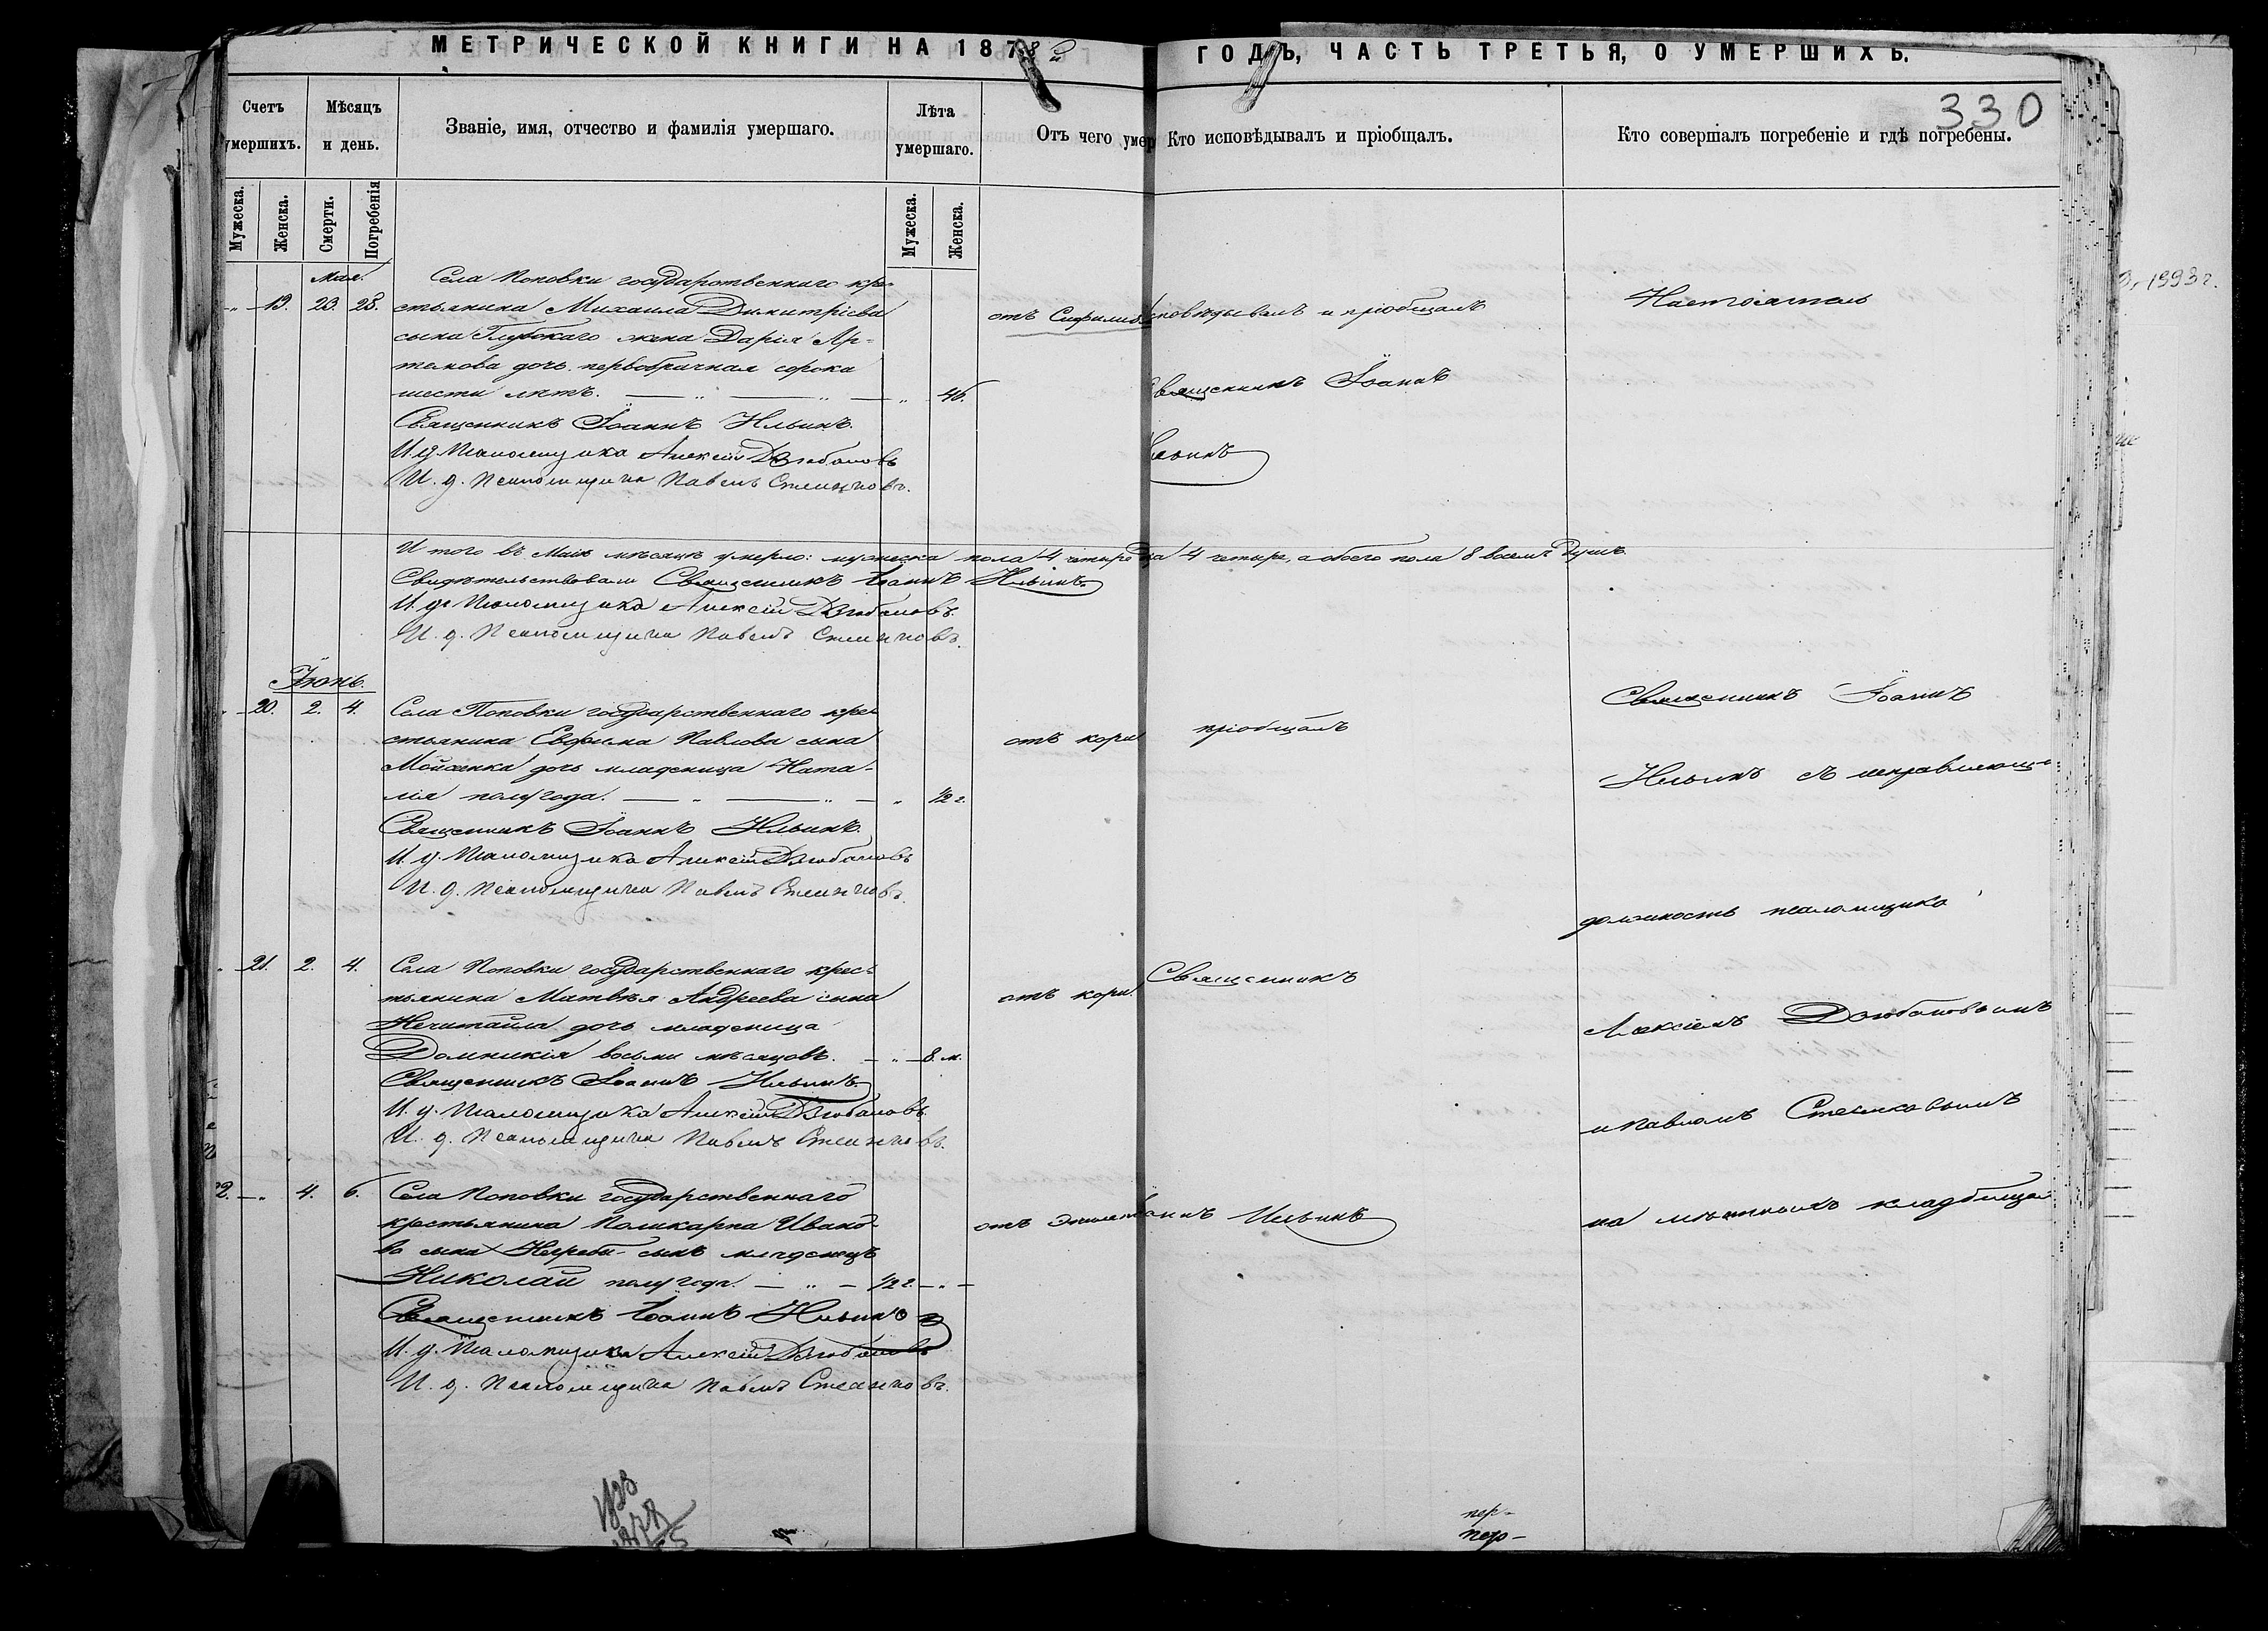 МЕТРИЧЕСКОЙ КНИГИ НА 187
ГОДЪ, ЧАСТЬ ТРЕТЬЯ, О УМЕРШИХЪ.
330
Счетъ умершихъ.
Мѣсяцъ и день.
Званіе, имя, отчество и фамилія умершаго.
Лѣта умершаго.
Отъ чего умер
Кто исповѣдывалъ и пріобщалъ.
Кто совершалъ погребеніе и гдѣ погребены.
Мужеска.
Женска.
Смерти.
Погребенія
Мужеска.
Женска.
Мая.
19. 23. 28.
Села Поповки государственнаго кре-
стьянина Михаила Димитріева
сына Глубокаго жена Дарія Ар-
темова дочь первобрачная сорока
шести лѣтъ. 46.
Священникъ Іоаннъ Ильинъ.
И. д. Псаломщика Алексій Дзюбановъ
И. д. Псаломщика Павелъ Стешковъ.
исповѣдывалъ и пріобщалъ
Священникъ Іоаннъ
Ильинъ
Настоятель
И того въ Маіѣ мѣсяцѣ умерло: мужеска пола 4 четыре 4 четыре, а обоего пола 8 восемь душъ.
Свидѣтельствовали Священникъ Іоаннъ Ильинъ.
И. д. Псаломщика Алексій Дзюбановъ.
И. д. Псаломщика Павелъ Стешковъ.
Іюнь.
20. 2. 4.
Села Поповки государственнаго кре-
стьянина Евфима Павлова сына
Мойсенка дочь младеница Ната-
лія полугода. 1/2 г.
Священникъ Іоаннъ Ильинъ.
И. д. Псаломщика Алексій Дзюбановъ
И. д. Псаломщика Павелъ Стешковъ.
отъ кори
пріобщалъ
Священникъ Іоаннъ
Ильинъ съ исправляющ.
должность псаломщика
21. 2. 4.
Села Поповки государственнаго крес-
тьянина Матвѣя Андреева сына
Нечитайла дочь младеница
Домникія восьми мѣсяцовъ. 8. м.
Священникъ Іоаннъ Ильинъ.
И. д. Псаломщика Алексій Дзюбановъ.
И. д. Псаломщика Павелъ Стешковъ.
отъ кори.
Священникъ
Алексіемъ Дзюбановымъ
и Павломъ Стешковымъ
4. 6.
Села Поповки государственнаго
крестьянина Поликарпа Ивано-
ва сына сынъ младенецъ
Николай полугода. 1/2 г.
Священникъ Іоаннъ Ильинъ
И. д. Псаломщика Алексій Дзюбановъ
И. д. Псаломщика Павелъ Стешковъ.
Іоаннъ Ильинъ
на мѣстномъ кладбищѣ
пер-
пер-